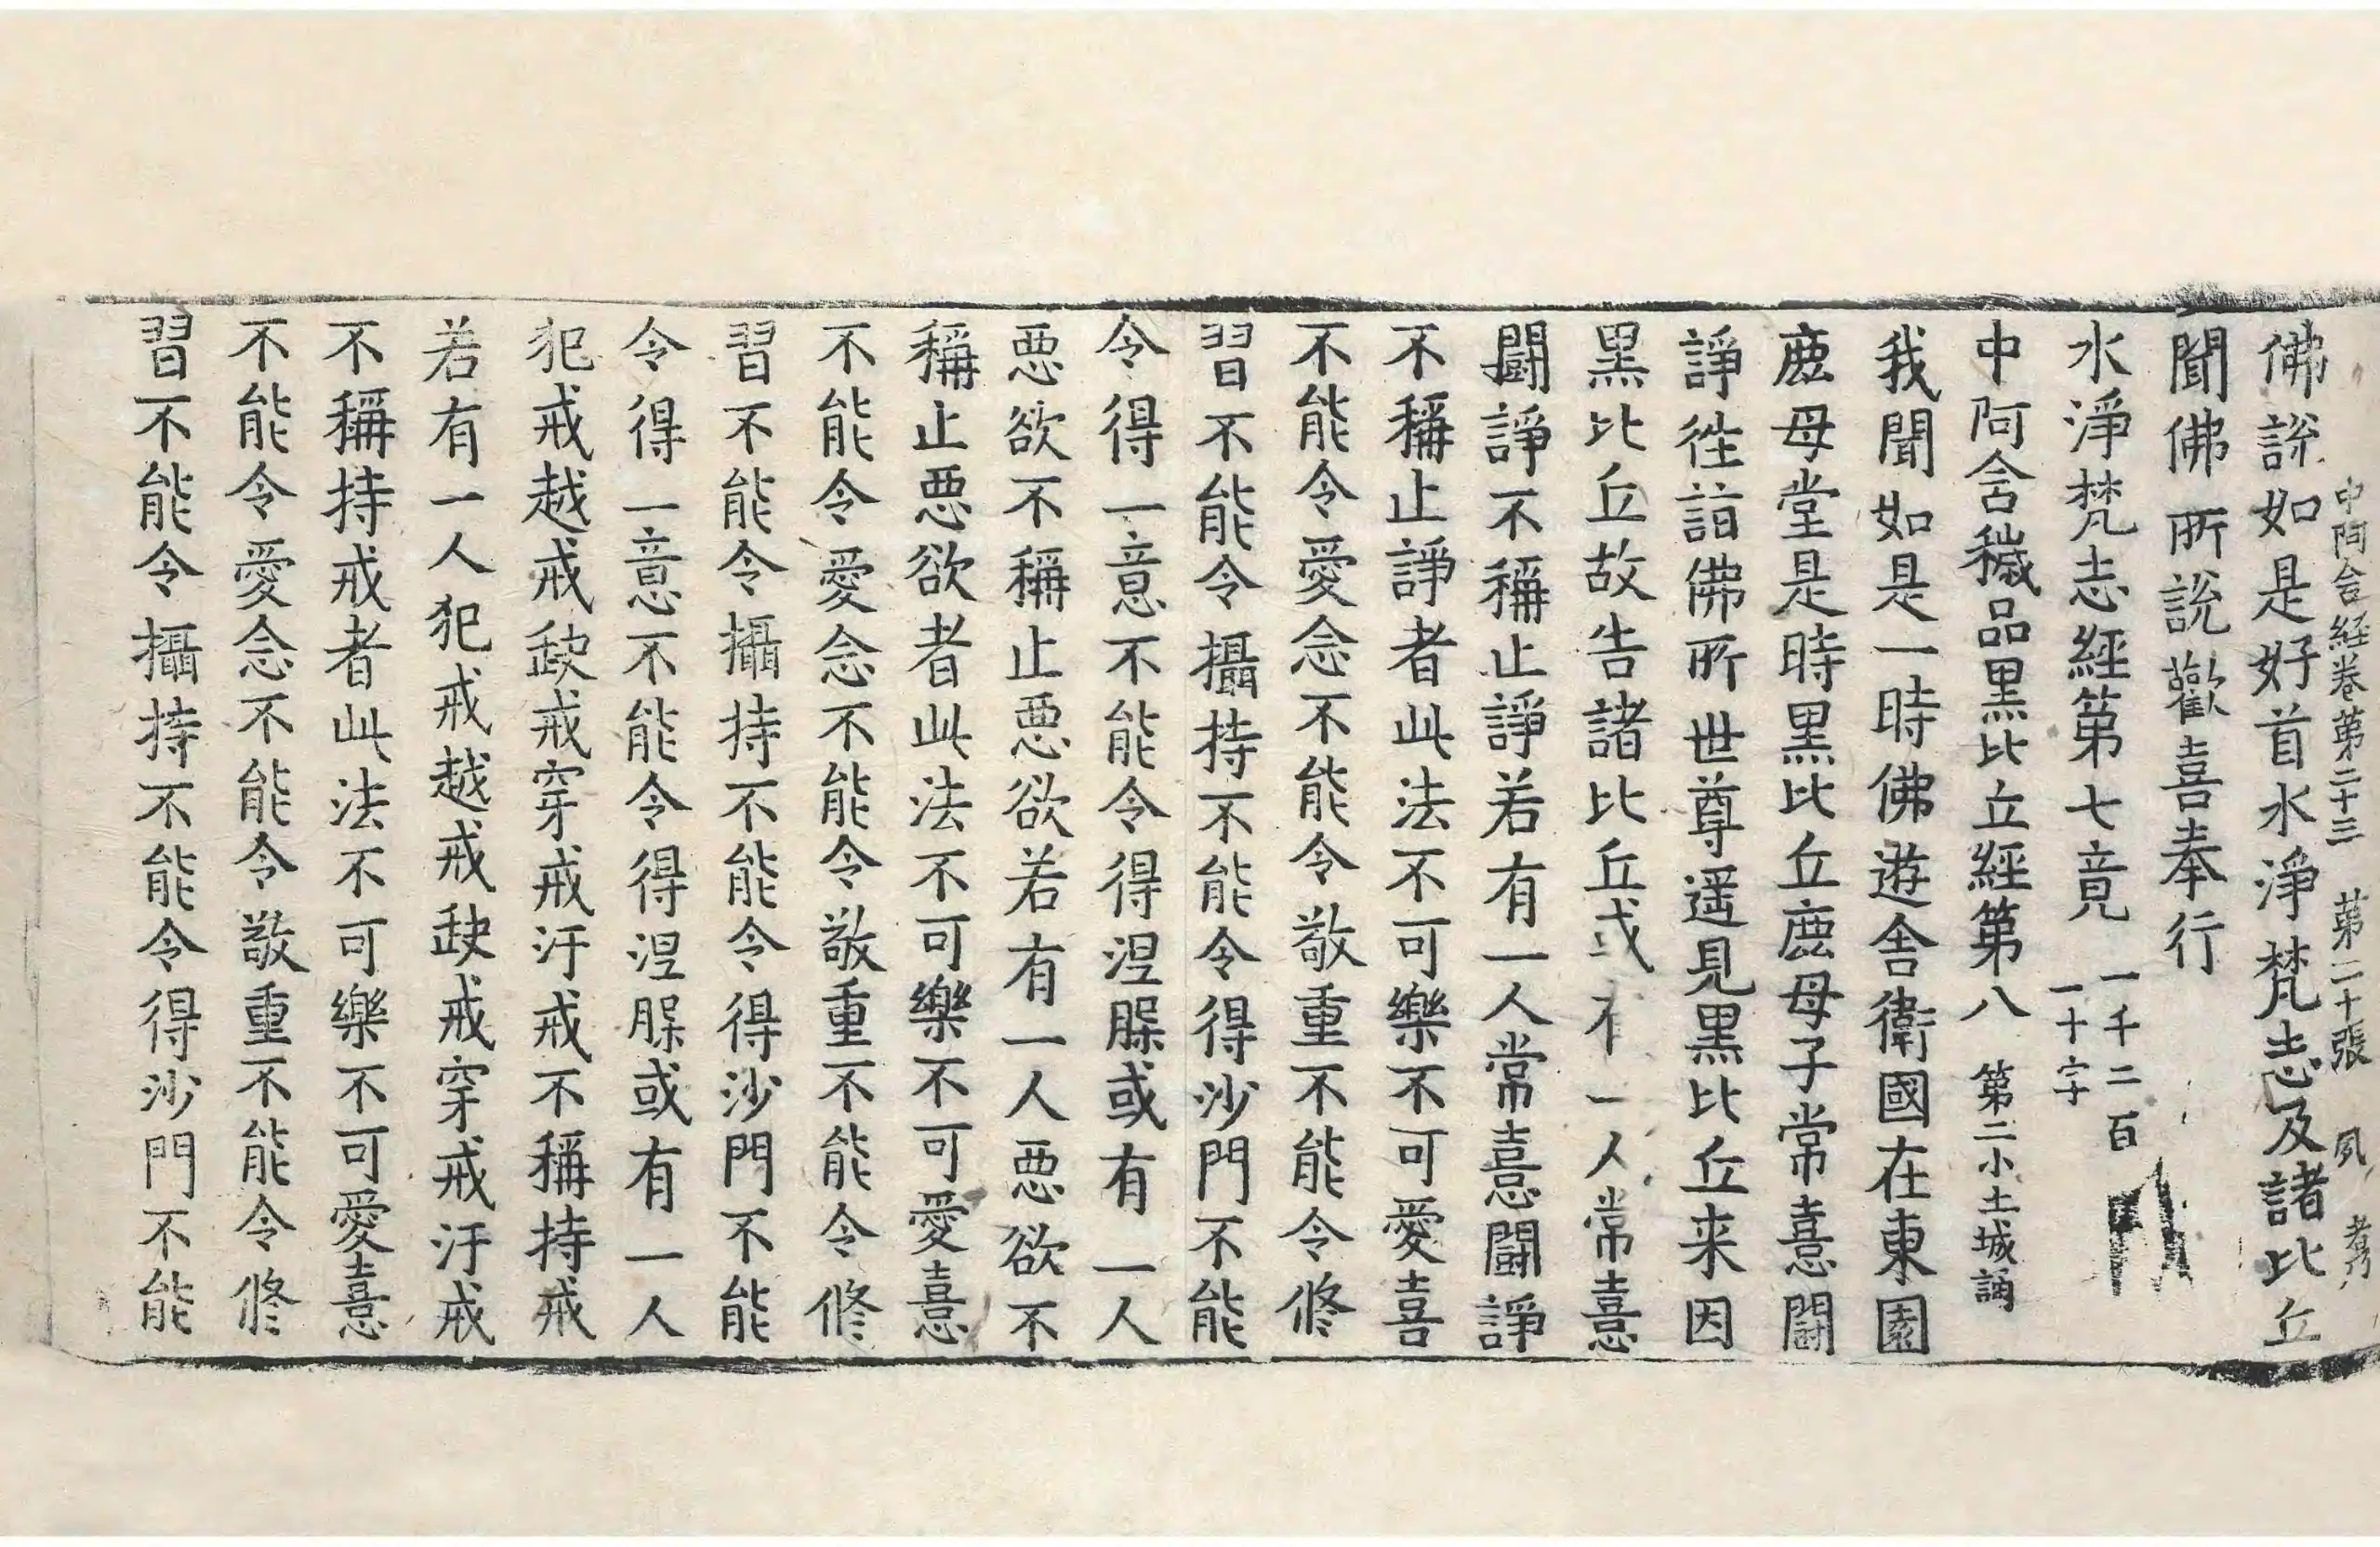 中阿含經卷第二十三 第二十張 夙
佛說如是好首水淨梵志及諸比丘
聞佛所說歡喜奉行
水淨梵志經第七竟 一千二百一十字
中阿含穢品黑比丘經第八 第二小土城誦
我聞如是一時佛遊舍衛國在東園
鹿母堂是時黑比丘鹿母子常憙鬪
諍往詣佛所世尊遥見黑比丘来因
黑比丘故告諸比丘或有一人常憙
鬪諍不稱止諍若有一人常憙鬪諍
不稱止諍者此法不可樂不可愛喜
不能令愛念不能令敬重不能令修
習不能令攝持不能令得沙門不能
令得一意不能令得涅槃或有一人
惡欲不稱止惡欲若有一人惡欲不
稱止惡欲者此法不可樂不可愛憙
不能令愛念不能令敬重不能令修
習不能令攝持不能令得沙門不能
令得一意不能令得涅槃或有一人
犯戒越戒缺戒穿戒汙戒不稱持戒
若有一人犯戒越戒缺戒穿戒汙戒
不稱持戒者此法不可樂不可愛憙
不能令愛念不能令敬重不能令修
習不能令攝持不能令得沙門不能